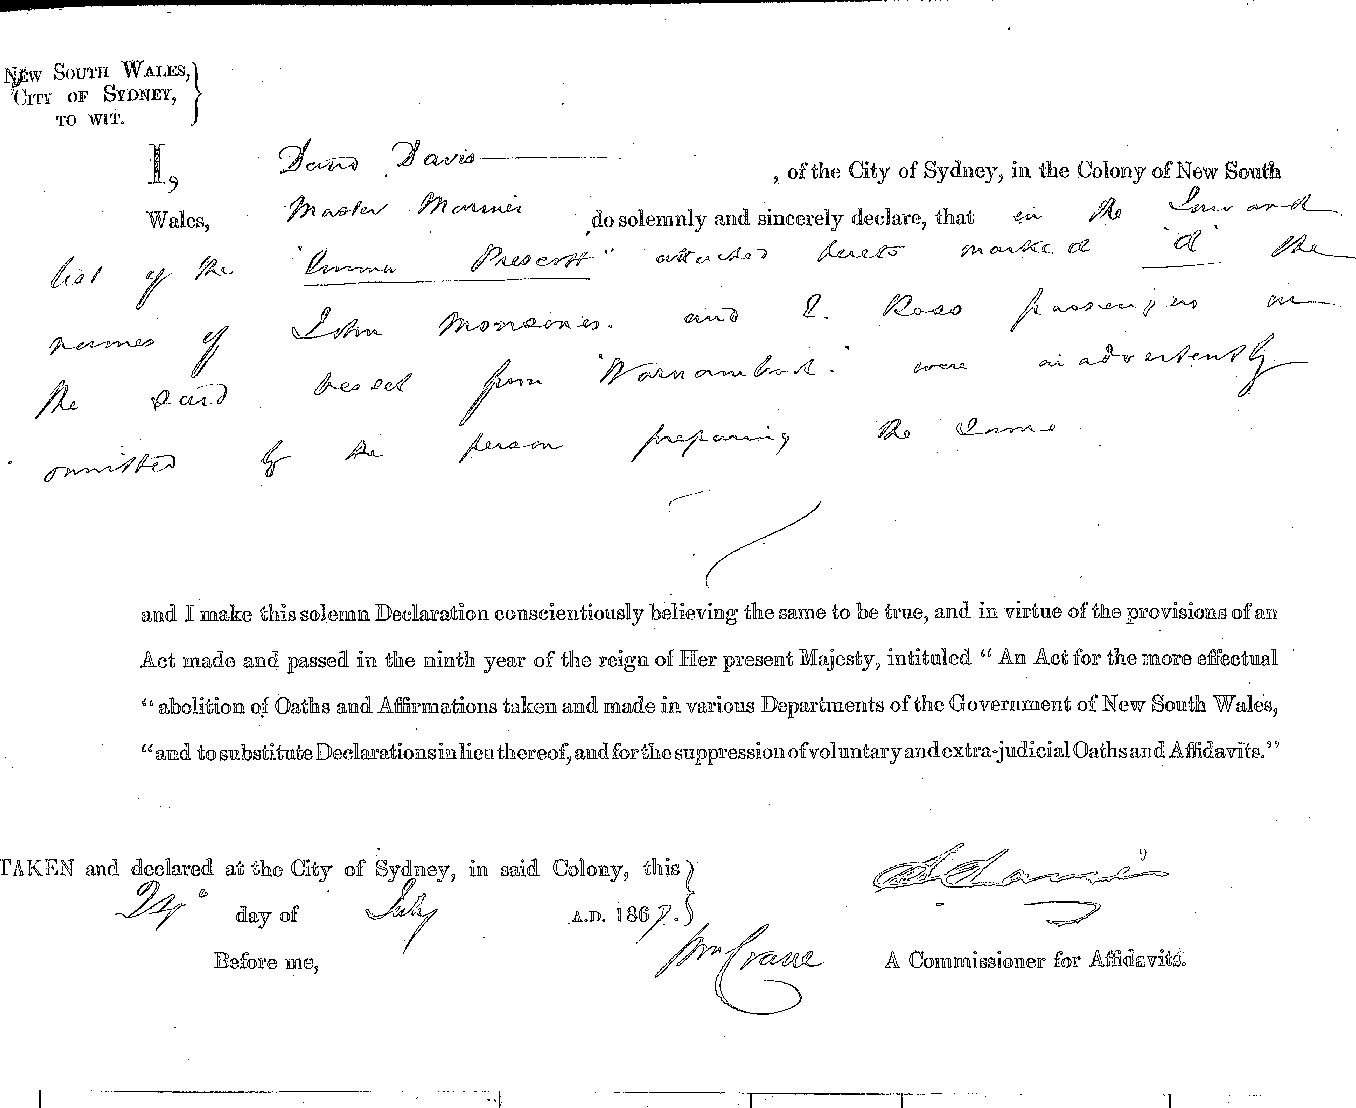 NEW SOUTH WALES,
CITY OF SYDNEY,
TO WIT.
I, David Davis , of the City of Sydney, in the Colony of New South
Wales, Master Mariner do solemnly and sincerely declare, that in the Inward
list of the "Emma Prescott" attached hereto marked "A" the
names of John and Ross passengers in
the said vessel from "Warnambool" were inadvertently
ommitted by the person preparing the same
and I make this solemn Declaration conscientiously believing the same to be true, and in virtue of the provisions of an
Act made and passed in the ninth year of the reign of Her present Majesty, intituled " An Act for the more effectual
" abolition of Oaths and Affirmations taken and made in various Departments of the Government of New South Wales,
"and to substitute Declarations in lieu thereof, and for the suppression of voluntary and extra-judicial Oaths and Affidavits."
TAKEN and declared at the City of Sydney, in said Colony, this
24th day of July A.D. 1867.
Before me, Wm Crane A Commissioner for Affidavits.